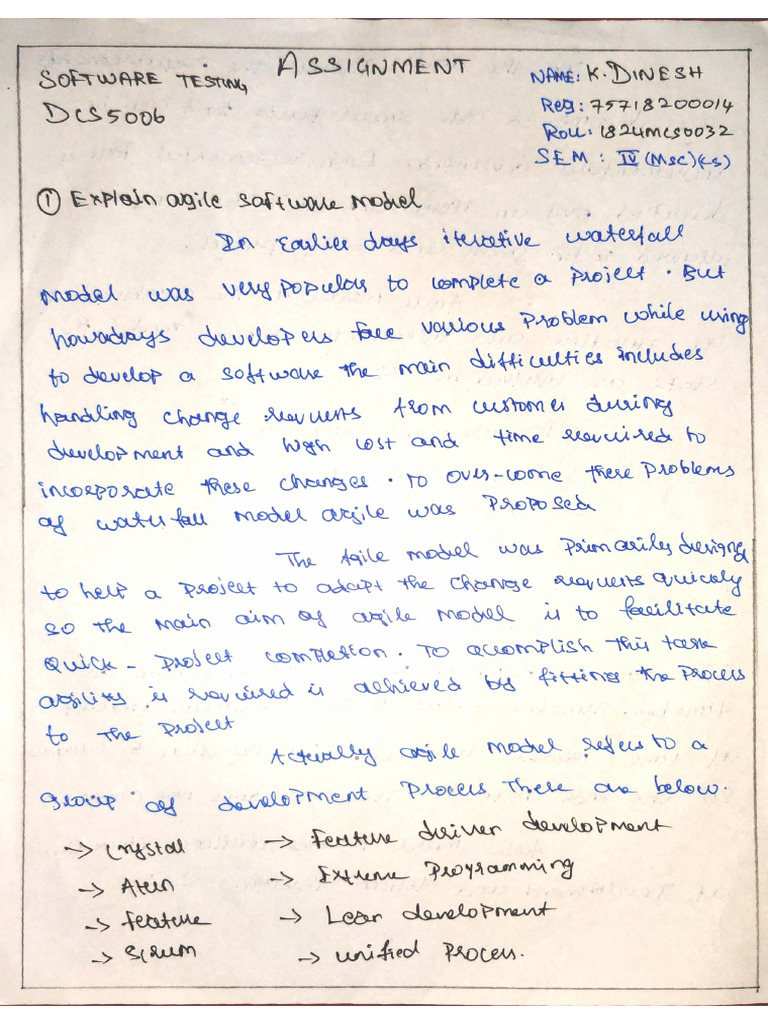 ASSIGNMENT
SOFTWARE TESTING
DCS5006
NAME: K. DINESH
Reg: 75718200014
Roll: 1824MCS0032
SEM : IV (MSc)(CS)
① Explain agile software model
In Earlier days iterative waterfall
model was very popular to complete a project. But
nowadays developers face various problem while using
to develop a software the main difficulties includes
handling change requests from customer during
development and high cost and time required to
incorporate these changes. To over-come these problems
of waterfall model agile was proposed
The Agile model was primarily designed
to help a project to adapt the change requests quickly
so the main aim of agile model is to facilitate
quick - project completion. To accomplish this task
agility is required is achieved by fitting the process
to the project
Actually agile model refers to a
group of development process These are below.
→ Crystal
→ Atern
→ feature
→ Scrum
→ Feature driven development
→ Extreme Programming
→ Lean development
→ unified process.